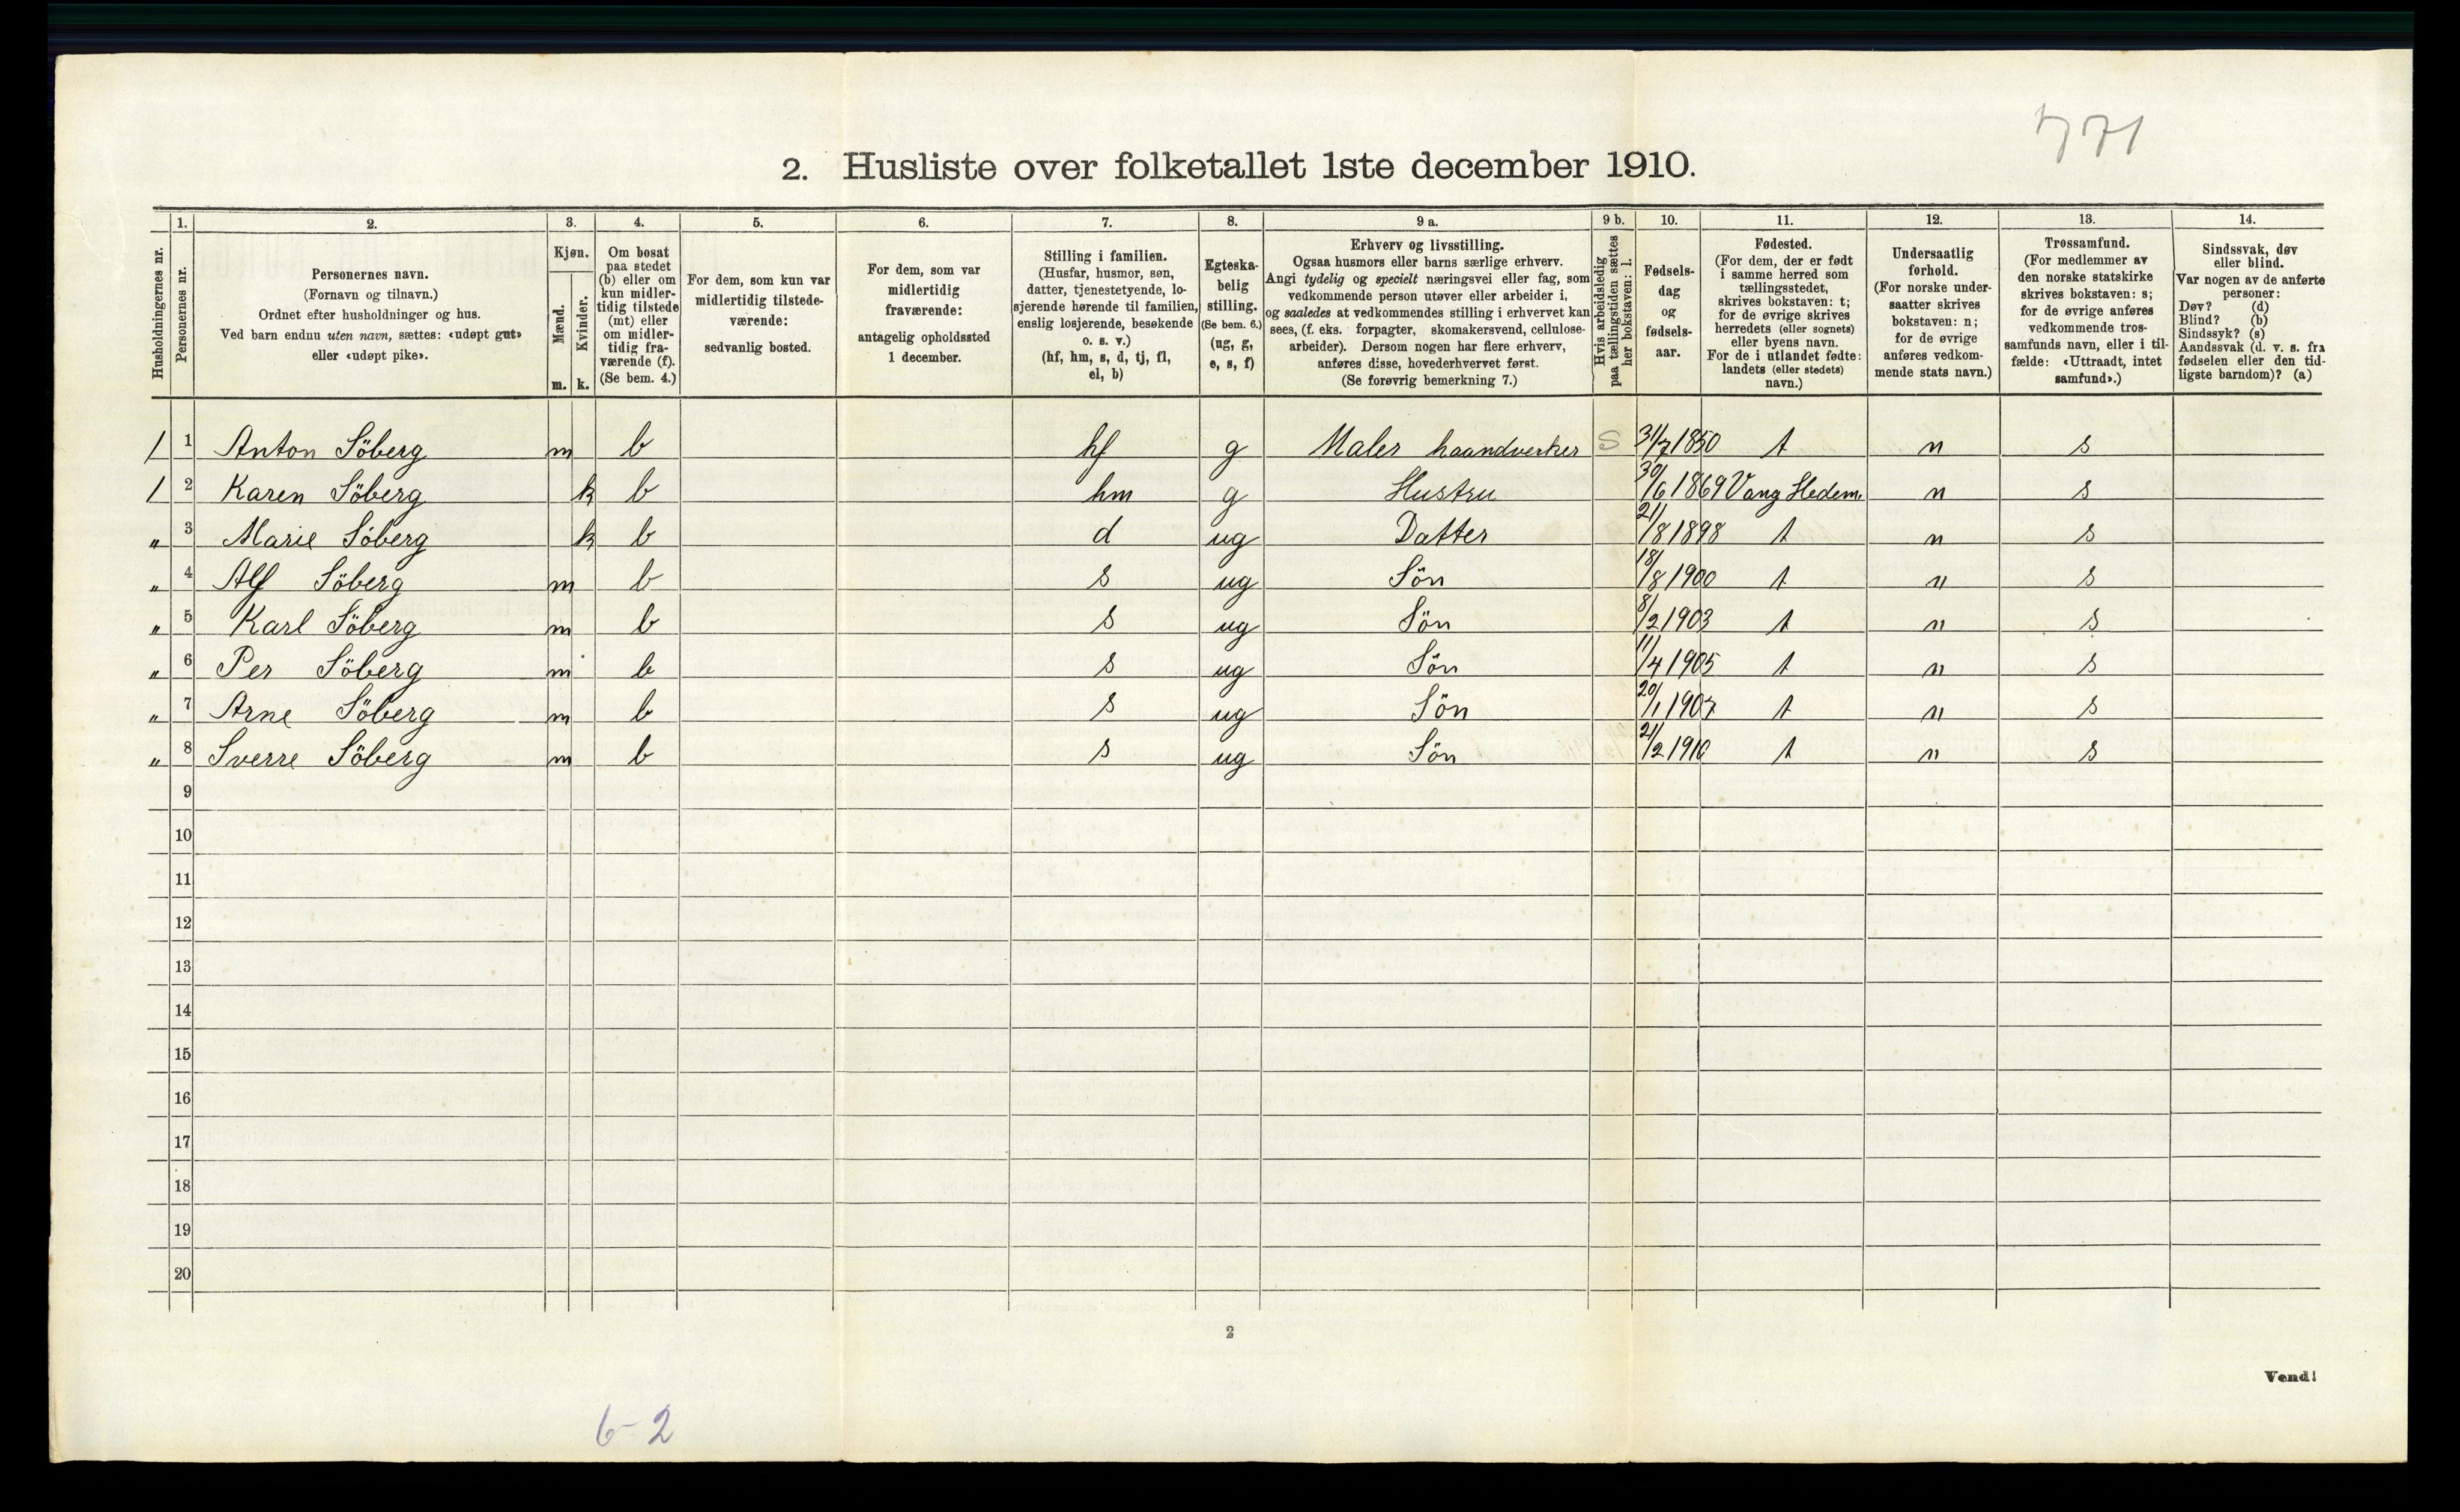 771
2. Husliste over folketallet 1ste december 1910.
Husholdningernes nr.
1.
Personernes nr.
2.
Personernes navn.
(Fornavn og tilnavn.)
Ordnet efter husholdninger og hus.
Ved barn endnu uten navn, sættes: «udøpt gut»
eller «udøpt pike».
3.
Kjøn.
Mænd.
Kvinder.
m. k.
4.
Om bosat
paa stedet
(b) eller om
kun midler-
tidig tilstede
(mt) eller
om midler-
tidig fra-
værende (f).
(Se bem. 4.)
5.
For dem, som kun var
midlertidig tilstede-
værende:
sedvanlig bosted.
6.
For dem, som var
midlertidig
fraværende:
antagelig opholdssted
1 december.
7.
Stilling i familien.
(Husfar, husmor, søn,
datter, tjenestetyende, lo-
sjerende hørende til familien,
enslig losjerende, besøkende
o. s. v.)
(hf, hm, s, d, tj, fl,
el, b)
8.
Egteska-
belig
stilling.
(Se bem. 6.)
(ug, g,
e, s, f)
9 a.
Erhverv og livsstilling.
Ogsaa husmors eller barns særlige erhverv.
Angi tydelig og specielt næringsvei eller fag, som
vedkommende person utøver eller arbeider i,
og saaledes at vedkommendes stilling i erhvervet kan
sees, (f. eks. forpagter, skomakersvend, cellulose-
arbeider). Dersom nogen har flere erhverv,
anføres disse, hovederhvervet først.
(Se forøvrig bemerkning 7.)
9 b.
Hvis arbeidsledig
paa tællingstiden sættes
her bokstaven: l.
10.
Fødsels-
dag
og
fødsels-
aar.
11.
Fødested.
(For dem, der er født
i samme herred som
tællingsstedet,
skrives bokstaven: t;
for de øvrige skrives
herredets (eller sognets)
eller byens navn.
For de i utlandet fødte:
landets (eller stedets)
navn.)
12.
Undersaatlig
forhold.
(For norske under-
saatter skrives
bokstaven: n;
for de øvrige
anføres vedkom-
mende stats navn.)
13.
Trossamfund.
(For medlemmer av
den norske statskirke
skrives bokstaven: s;
for de øvrige anføres
vedkommende tros-
samfunds navn, eller i til-
fælde: «Uttraadt, intet
samfund».)
14.
Sindssvak, døv
eller blind.
Var nogen av de anførte
personer:
Døv? (d)
Blind? (b)
Sindssyk? (s)
Aandssvak (d. v. s. fra
fødselen eller den tid-
ligste barndom)? (a)
1 1 Anton Söberg m b hf g Maler haandverker S 31/7 1850 t n s
1 2 Karen Söberg k b hm g Hustru 30/6 1869 Vang Hedem. n s
" 3 Marie Söberg k b d ug Datter 21/8 1898 t n s
" 4 Alf Söberg m b s ug Sön 18/8 1900 t n s
" 5 Karl Söberg m b s ug Sön 8/2 1903 t n s
" 6 Per Söberg m b s ug Sön 11/4 1905 t n s
" 7 Arne Söberg m b s ug Sön 20/1 1907 t n s
" 8 Sverre Söberg m b s ug Sön 21/2 1910 t n s
9
10
11
12
13
14
15
16
17
18
19
20
2
Vend!
6-2